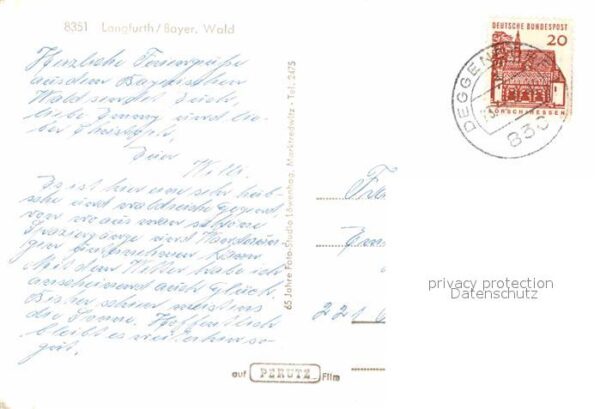 8351 Langfurth / Bayer. Wald
Herzliche Feriengrüße
aus dem Bayrischen
Wald sendet Euch,
liebe Emmy und lie-
ber Christoph,
Euer
Willi.
Es ist hier eine sehr hüb-
sche und waldreiche Gegend,
von wo aus man schöne
Spaziergänge und Wanderun-
gen unternehmen kann.
Mit dem Wetter habe ich
anscheinend auch Glück.
Bisher schien meistens
die Sonne. Hoffentlich
bleibt es weiterhin so
gut.
65 Jahre Foto-Studio Löwenhag, Marktredwitz - Tel. 2475
auf PERUTZ Film
DEUTSCHE BUNDESPOST
20
LORSCH/HESSEN
DEGGENDORF
836
221
privacy protection
Datenschutz